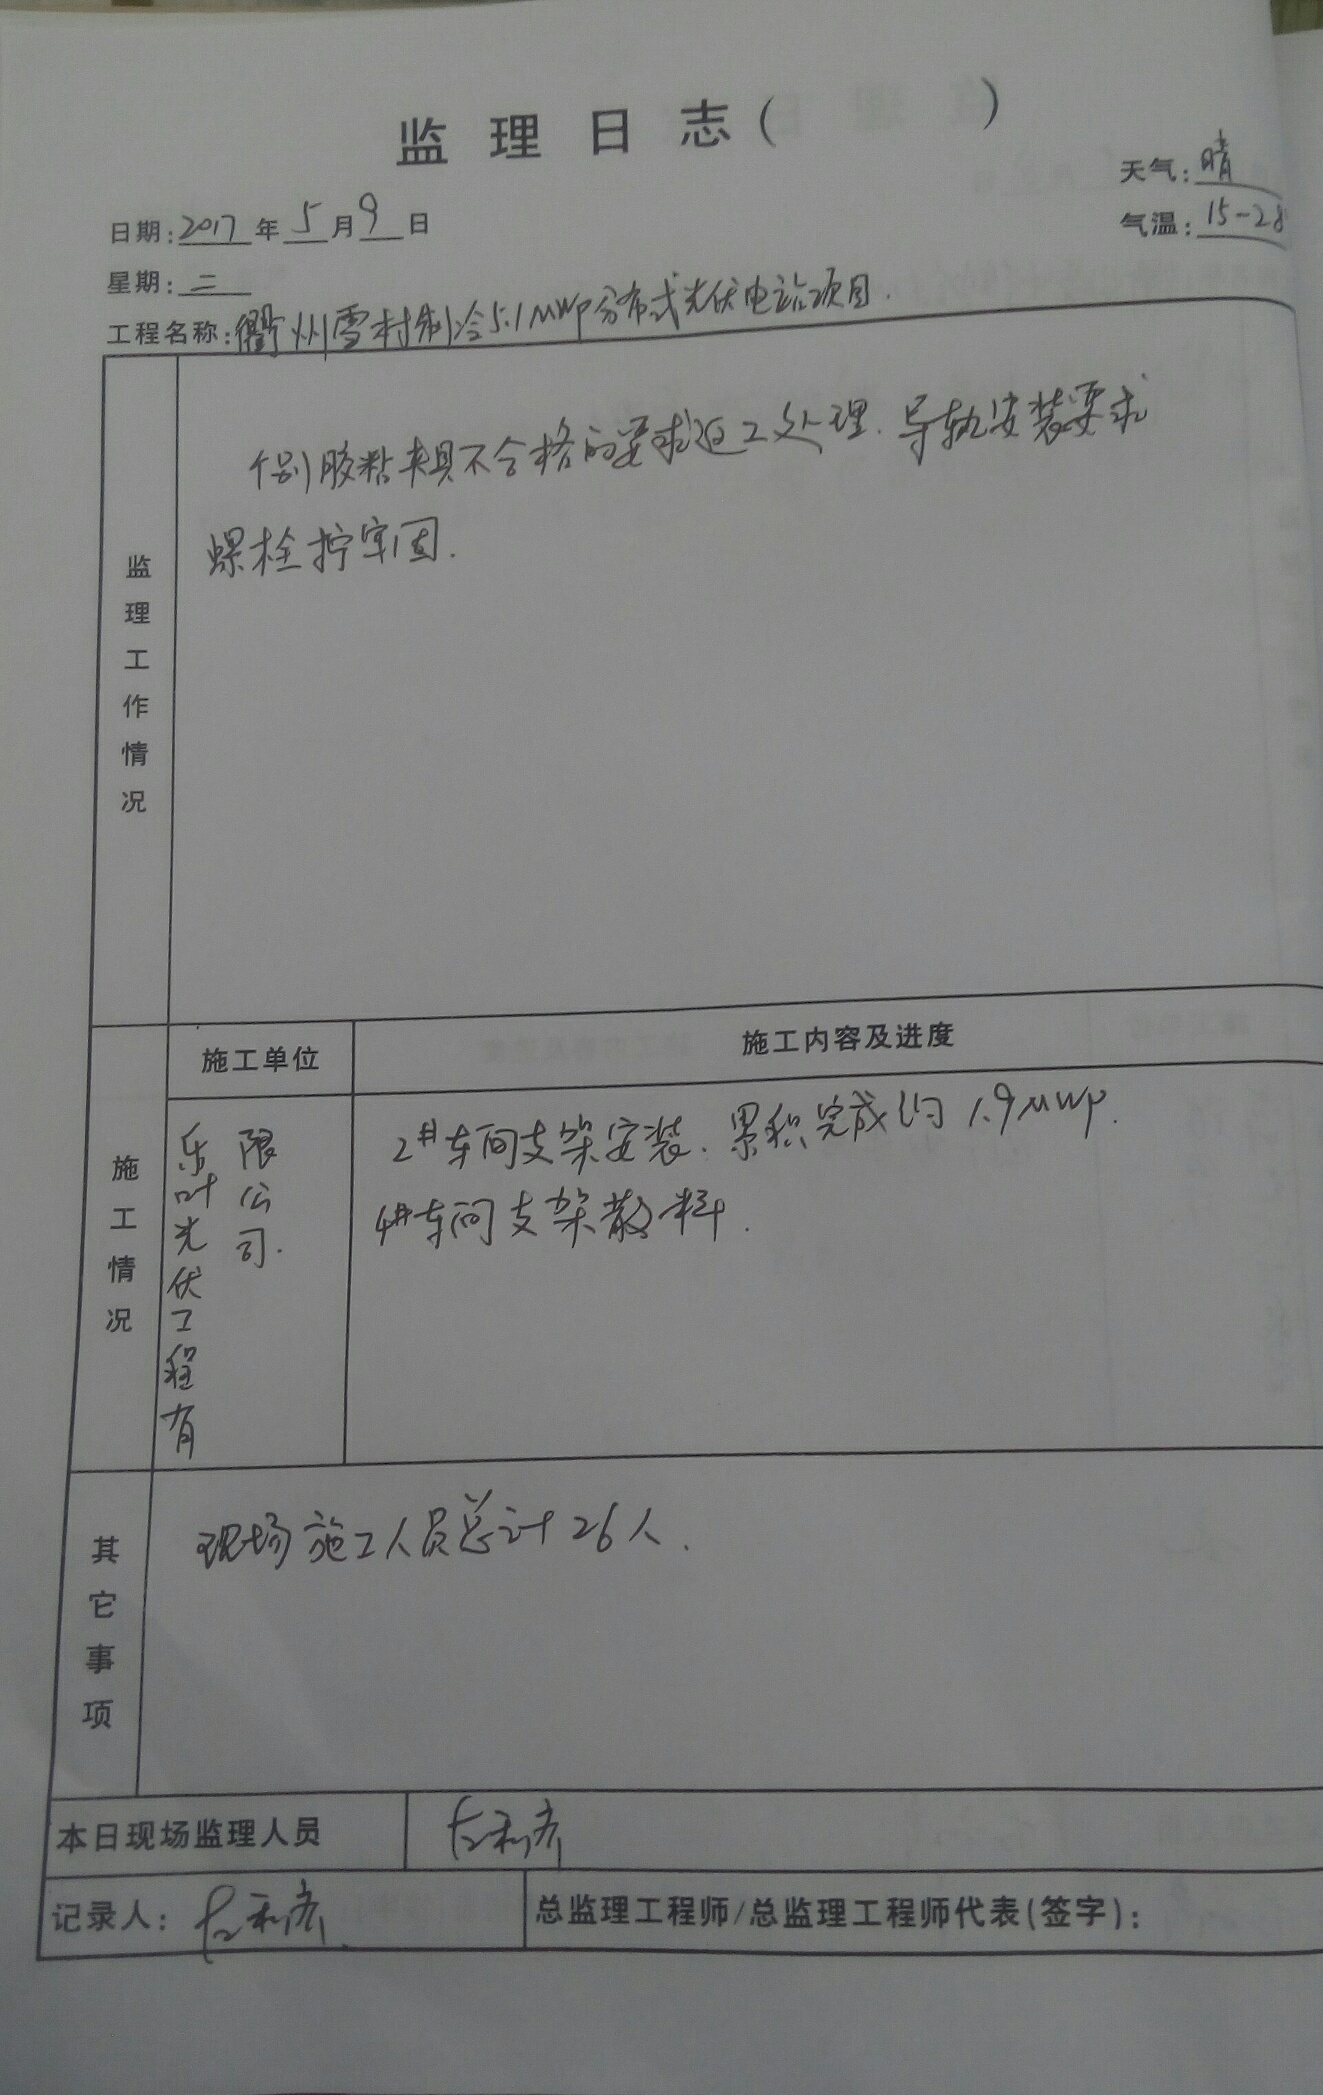 监理日志(      )
天气:晴
日期:2017年5月9日
气温:15-28
星期:二
工程名称:衢州雪村制冷5.1MWp分布式光伏电站项目.
监理工作情况
个别胶粘夹具不合格的要求返工处理.导轨安装要求
螺栓拧牢固.
施工情况
施工单位
施工内容及进度
乐叶光伏工程有
限公司.
2#车间支架安装.累积完成约1.9MWp.
4#车间支架散料.
其它事项
现场施工人员总计26人.
本日现场监理人员
记录人:
总监理工程师/总监理工程师代表(签字):